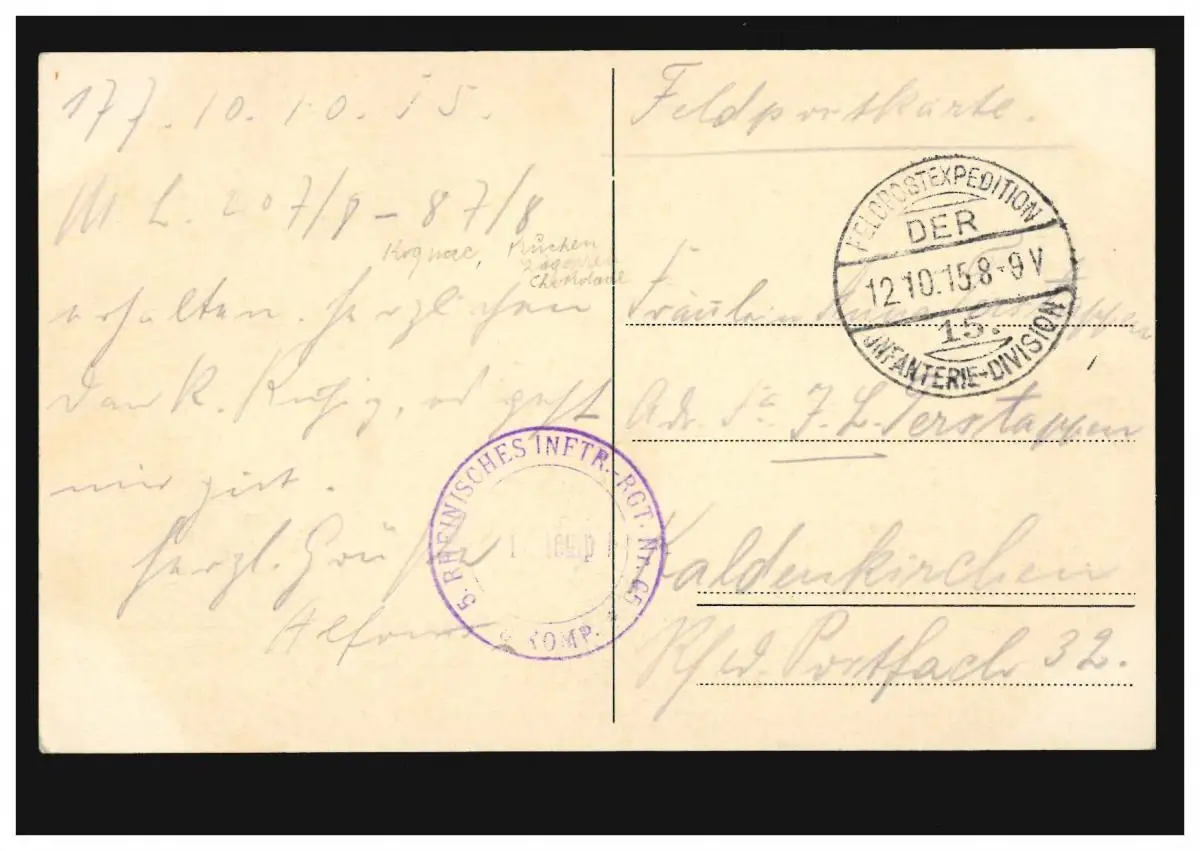 177. 10.10.15.
M. L. 207/9 - 87/8
Kognac, Kuchen
Chokolade
erhalten. Herzlichen
Dank. Ruhig, es geht
mir gut.
Herzl. Grüße
Alfons
Feldpostkarte.
FELDPOSTEXPEDITION
DER
12.10.15.8-9V
15.
INFANTERIE-DIVISION
Fräulein Anna Terstappen
Adr. Fa J. L. Terstappen
Kaldenkirchen
Rhld. Postfach 32.
5. RHEINISCHES INFTR.-RGT. Nr. 65
KOMP.